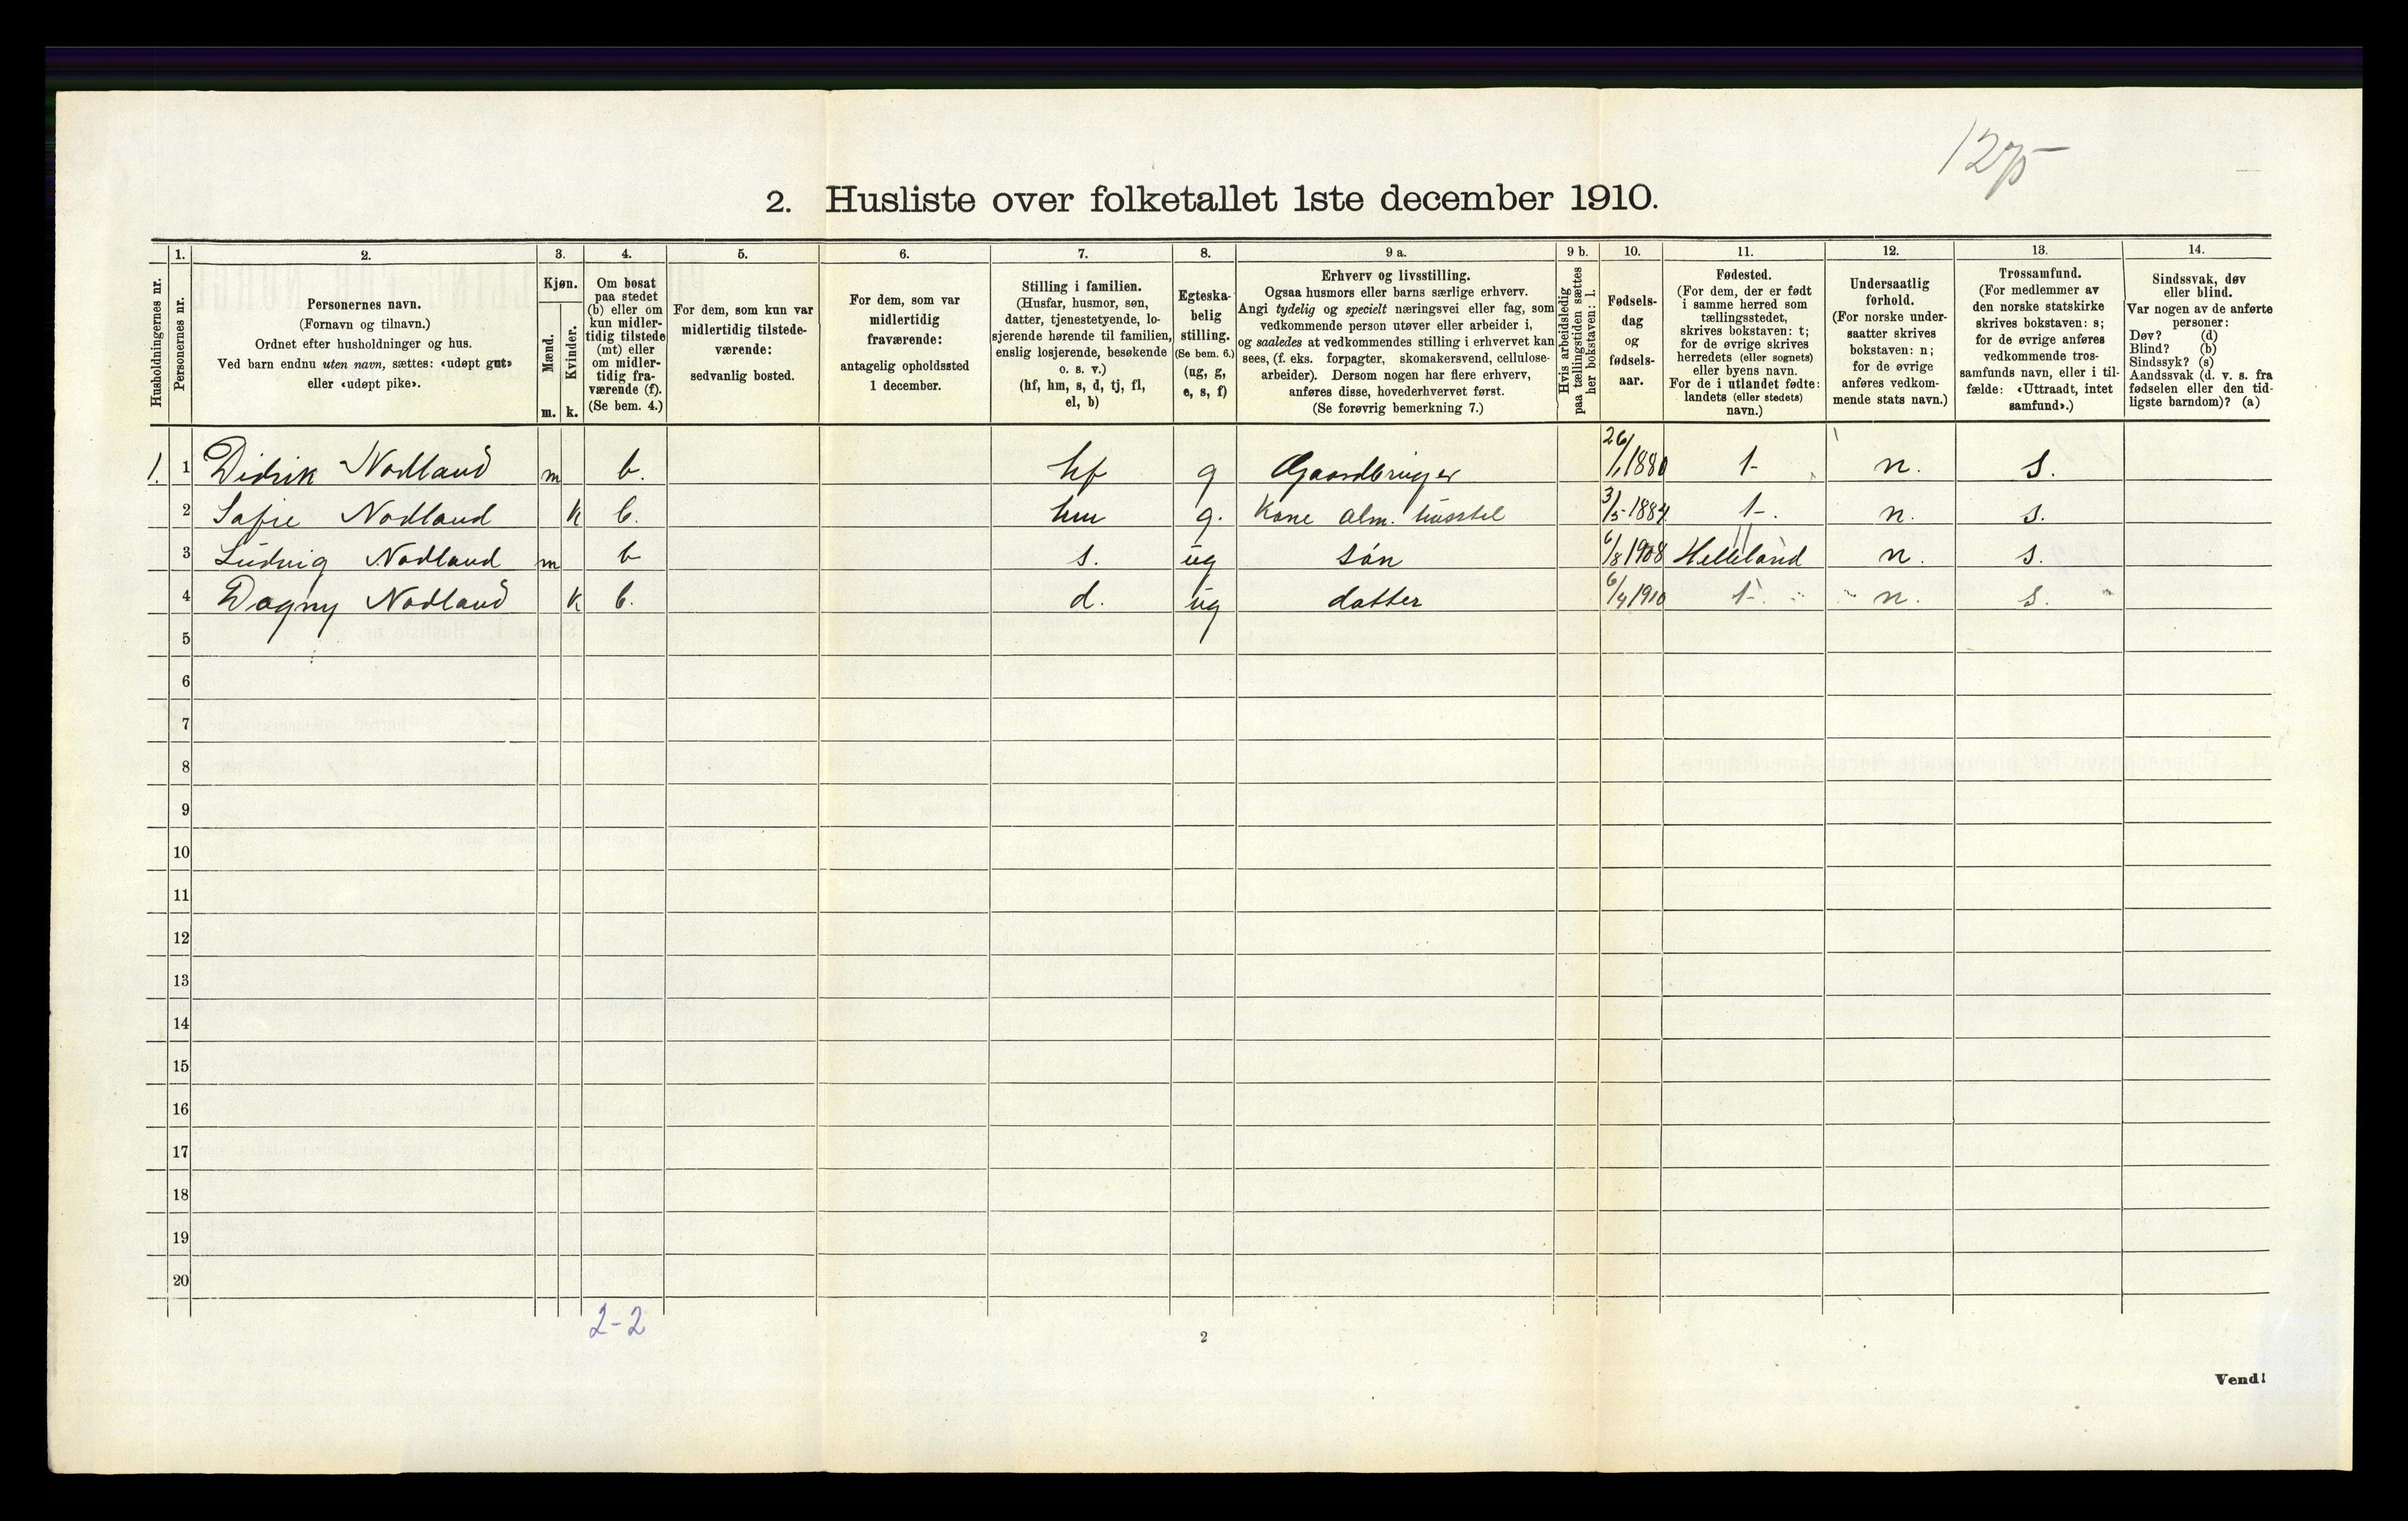 1275
2. Husliste over folketallet 1ste december 1910.
1. 2. 3. 4. 5. 6. 7. 8. 9 a. 9 b. 10. 11. 12. 13. 14.
Husholdningernes nr.
Personernes nr.
Personernes navn.
(Fornavn og tilnavn.)
Ordnet efter husholdninger og hus.
Ved barn endnu uten navn, sættes: «udøpt gut»
eller «udøpt pike».
Kjøn.
Mænd.
Kvinder.
m. k.
Om bosat
paa stedet
(b) eller om
kun midler-
tidig tilstede
(mt) eller
om midler-
tidig fra-
værende (f).
(Se bem. 4.)
For dem, som kun var
midlertidig tilstede-
værende:
sedvanlig bosted.
For dem, som var
midlertidig
fraværende:
antagelig opholdssted
1 december.
Stilling i familien.
(Husfar, husmor, søn,
datter, tjenestetyende, lo-
sjerende hørende til familien,
enslig losjerende, besøkende
o. s. v.)
(hf, hm, s, d, tj, fl,
el, b)
Egteska-
belig
stilling.
(Se bem. 6.)
(ug, g,
e, s, f)
Erhverv og livsstilling.
Ogsaa husmors eller barns særlige erhverv.
Angi tydelig og specielt næringsvei eller fag, som
vedkommende person utøver eller arbeider i,
og saaledes at vedkommendes stilling i erhvervet kan
sees, (f. eks. forpagter, skomakersvend, cellulose-
arbeider). Dersom nogen har flere erhverv,
anføres disse, hovederhvervet først.
(Se forøvrig bemerkning 7.)
Hvis arbeidsledig
paa tællingstiden sættes
her bokstaven: l.
Fødsels-
dag
og
fødsels-
aar.
Fødested.
(For dem, der er født
i samme herred som
tællingsstedet,
skrives bokstaven: t;
for de øvrige skrives
herredets (eller sognets)
eller byens navn.
For de i utlandet fødte:
landets (eller stedets)
navn.)
Undersaatlig
forhold.
(For norske under-
saatter skrives
bokstaven: n;
for de øvrige
anføres vedkom-
mende stats navn.)
Trossamfund.
(For medlemmer av
den norske statskirke
skrives bokstaven: s;
for de øvrige anføres
vedkommende tros-
samfunds navn, eller i til-
fælde: «Uttraadt, intet
samfund».)
Sindssvak, døv
eller blind.
Var nogen av de anførte
personer:
Døv? (d)
Blind? (b)
Sindssyk? (s)
Aandssvak (d. v. s. fra
fødselen eller den tid-
ligste barndom)? (a)
1. 1 Didrik Nodland m b. hf g Gaardbruger 26/1 1880 t n. s.
2 Sofie Nodland k b. hm g. Kone alm. husstel 3/5-1884 t. n. s.
3 Ludvig Nodland m b s. ug søn 6/8 1908 Helleland n. s.
4 Dagny Nodland k b. d. ug datter 6/4 1910 t. n. s.
5
6
7
8
9
10
11
12
13
14
15
16
17
18
19
20
2-2
2
Vend!